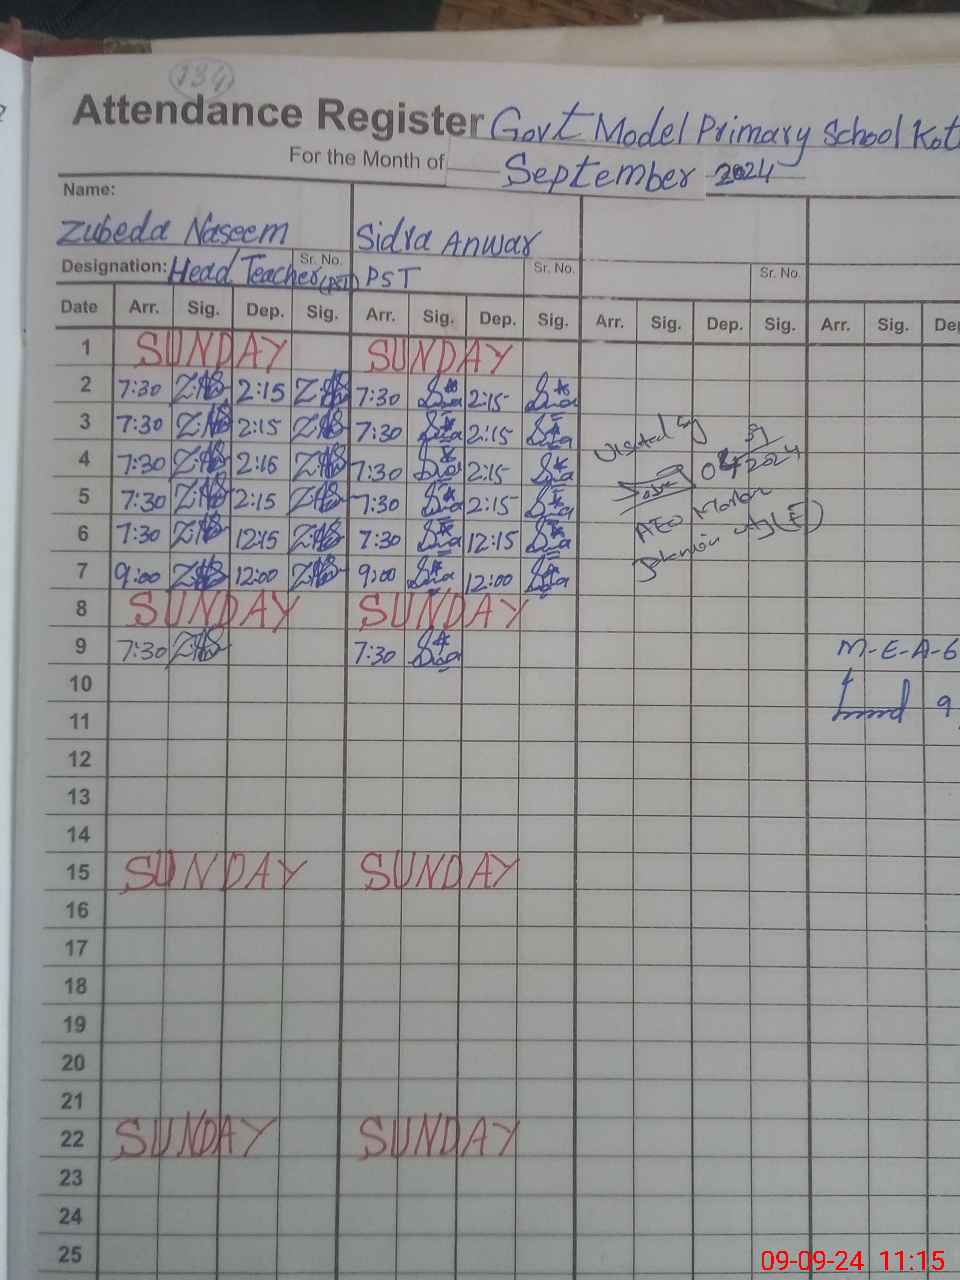 134
Attendance Register Govt Model Primary School Kot
For the Month of September 2024
Name:
Zubeda Naseem Sidra Anwar
Designation: Head Teacher (PST) Sr. No. PST Sr. No. Sr. No.
Date Arr. Sig. Dep. Sig. Arr. Sig. Dep. Sig. Arr. Sig. Dep. Sig. Arr. Sig. De
1 SUNDAY SUNDAY
2 7:30 2:15 7:30 2:15
3 7:30 2:15 7:30 2:15
4 7:30 2:15 7:30 2:15
5 7:30 2:15 7:30 2:15
6 7:30 12:15 7:30 12:15
7 9:00 12:00 9:00 12:00
8 SUNDAY SUNDAY
9 7:30 7:30
10
11
12
13
14
15 SUNDAY SUNDAY
16
17
18
19
20
21
22 SUNDAY SUNDAY
23
24
25
Visited by
2024
AEO
(E)
M-E-A-6
9
09-09-24 11:15